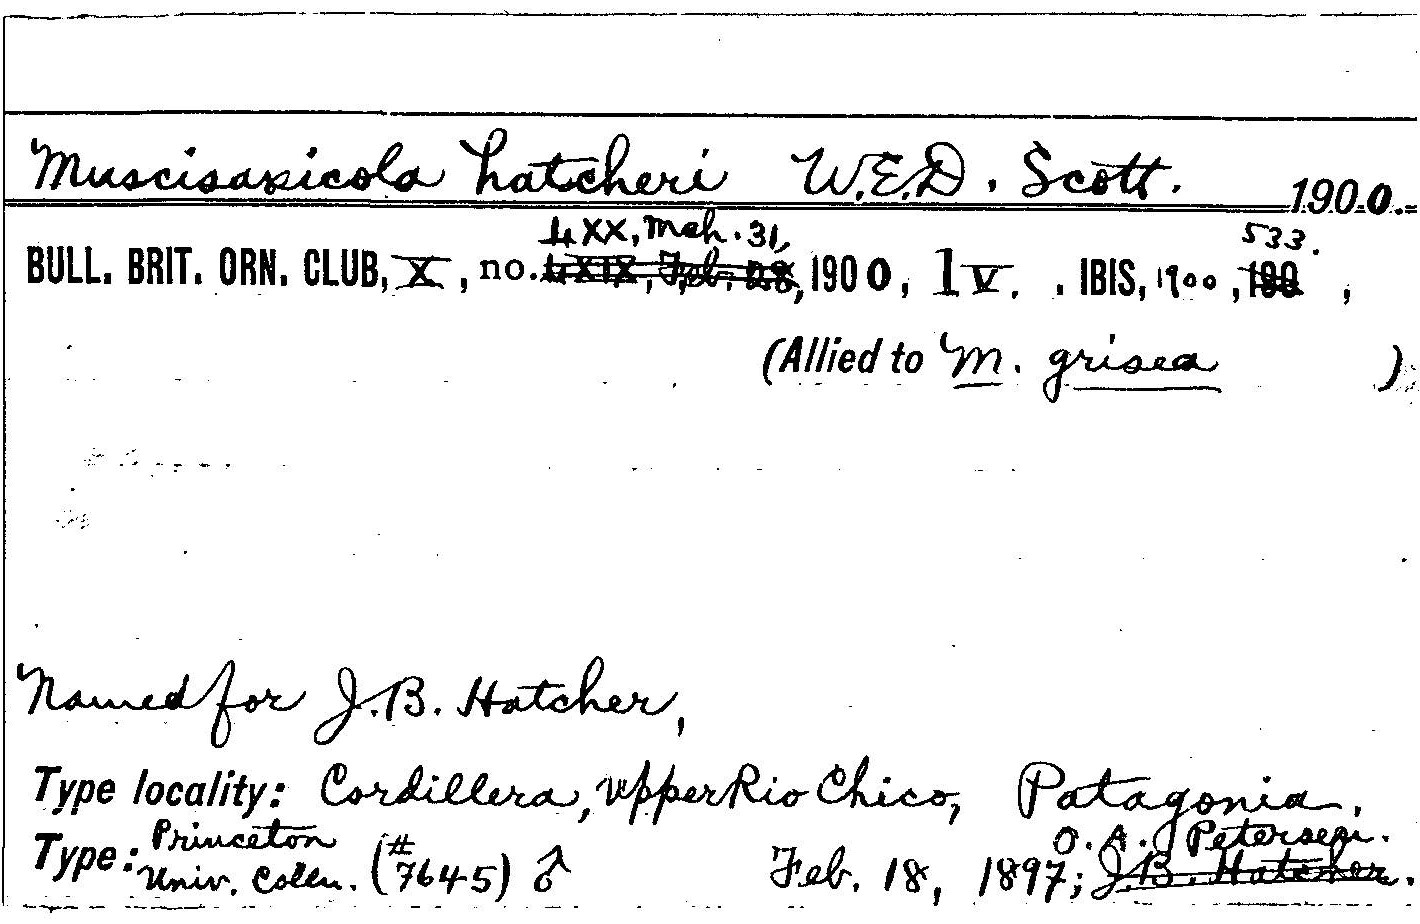 Muscisaxicola hatcheri W.E.D. Scott. 1900.
LXX, Mch. 31,
533.
BULL. BRIT. ORN. CLUB, X, no. LXIX, Feb. 28, 1900, lv. . IBIS, 1900, 190 ,
(Allied to M. grisea )
Named for J.B. Hatcher,
Type locality: Cordillera, upper Rio Chico, Patagonia.
Princeton O. A. Peterson.
Type: Univ. Colln. (# 7645) ♂ Feb. 18, 1897; J.B. Hatcher.